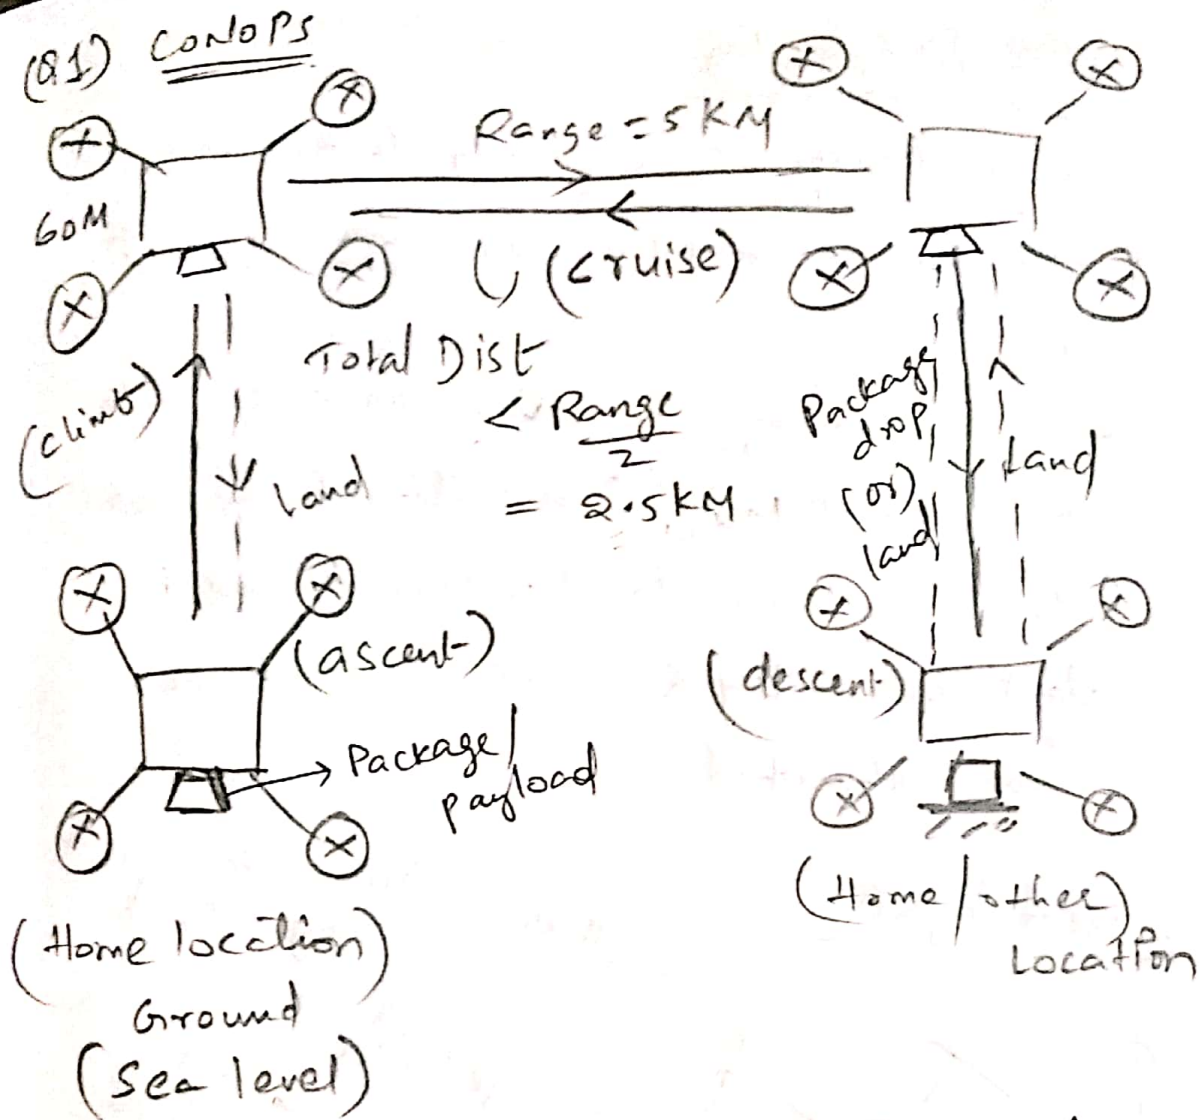 (Q1) CONOPS
Range = 5 KM
60M
(cruise)
Total Dist
< Range
2
= 2.5 KM
(climb)
land
Package
drop
(or)
land
land
(ascent)
(descent)
Package/
payload
(Home location)
Ground
(Sea level)
(Home/other)
Location